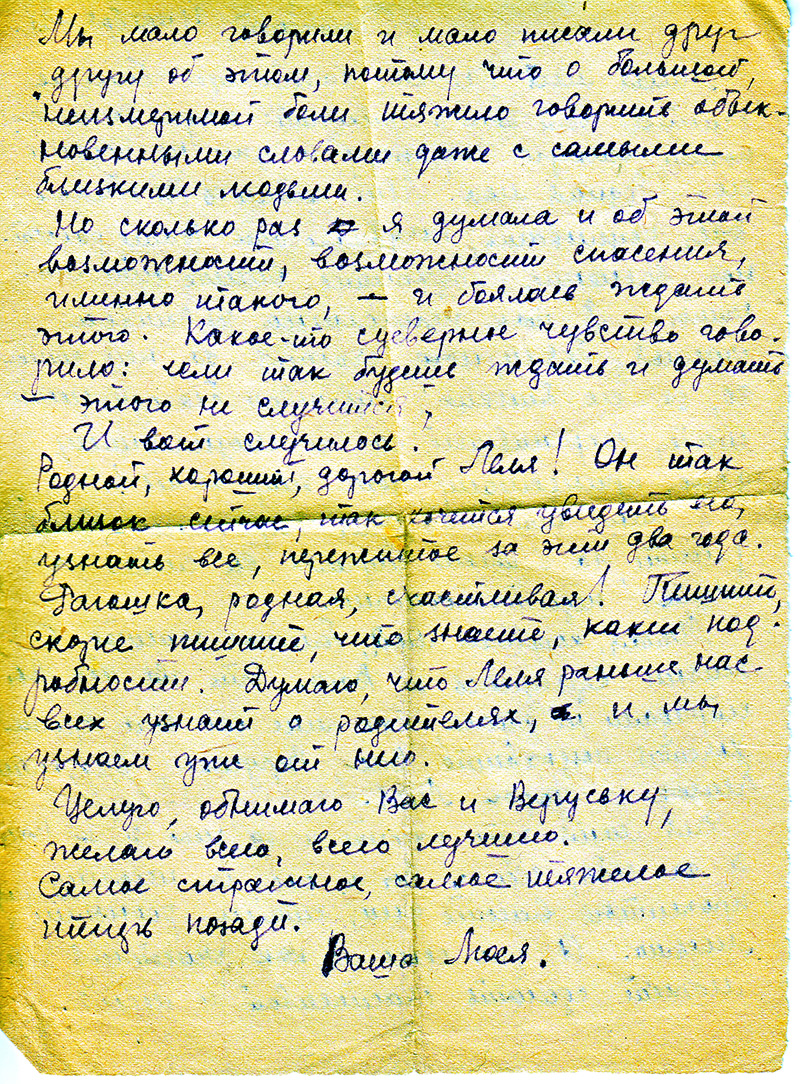 Мы мало говорили и мало писали друг
другу об этом, потому что о большой,
неизмеримой боли тяжело говорить обык-
новенными словами даже с самыми
близкими людьми.
Но сколько раз я думала и об этой
возможности, возможности спасения,
именно такого, — и боялась ждать
этого. Какое-то суеверное чувство гово-
рило: если так будешь ждать и думать
— этого не случится,
И вот случилось.
Родной, хороший, дорогой Леля! Он так
близок сейчас, так хочется увидеть его,
узнать все, пережитое за эти два года.
родная, счастливая! Пишите,
скорее пишите, что знаете, какие под-
робности. Думаю, что Леля раньше нас
всех узнает о родителях, и мы
узнаем уже от него.
Целую, обнимаю Вас и Веруську,
желаю всего, всего лучшего.
Самое страшное, самое тяжелое
теперь позади.
Ваша Люся.